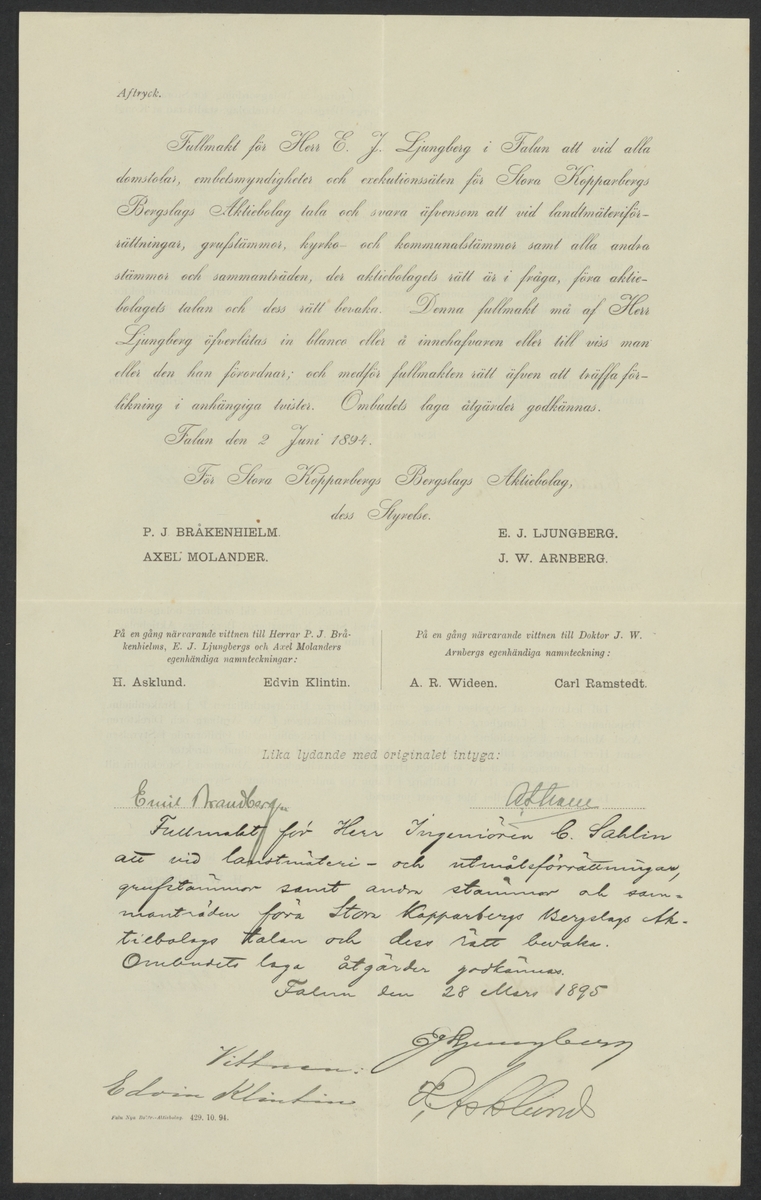 Aftryck.
Fullmakt för Herr E. J. Ljungberg i Falun att vid alla
domstolar, embetsmyndigheter och exekutionssäten för Stora Kopparbergs
Bergslags Aktiebolag tala och svara äfvensom att vid landtmäteriför-
rättningar, grufstämmor, kyrko- och kommunalstämmor samt alla andra
stämmor och sammanträden, der aktiebolagets rätt är i fråga, föra aktie-
bolagets talan och dess rätt bevaka. Denna fullmakt må af Herr
Ljungberg öfverlåtas in blanco eller å innehafvaren eller till viss man
eller den han förordnar; och medför fullmakten rätt äfven att träffa för-
likning i anhängiga tvister. Ombudets laga åtgärder godkännas.
Falun den 2 Juni 1894.
För Stora Kopparbergs Bergslags Aktiebolag,
dess Styrelse.
P. J. BRÅKENHIELM. E. J. LJUNGBERG.
AXEL MOLANDER. J. W. ARNBERG.
På en gång närvarande vittnen till Herrar P. J. Brå-
kenhielms, E. J. Ljungbergs och Axel Molanders
egenhändiga namnteckningar:
H. Asklund. Edvin Klintin.
På en gång närvarande vittnen till Doktor J. W.
Arnbergs egenhändiga namnteckning:
A. R. Wideen. Carl Ramstedt.
Lika lydande med originalet intyga:
Emil
Fullmakt för Herr Ingeniören C. Sahlin
att vid landtmäteri- och utmålsförrättningar,
grufstämmor samt andra stämmor och sam-
manträden föra Stora Kopparbergs Bergslags Ak-
tiebolags talan och dess rätt bevaka.
Ombudets laga åtgärder godkännas.
Falun den 28 Mars 1895
EJLjungberg
Vittnen:
Edvin Klintin H. Asklund
429. 10. 94.